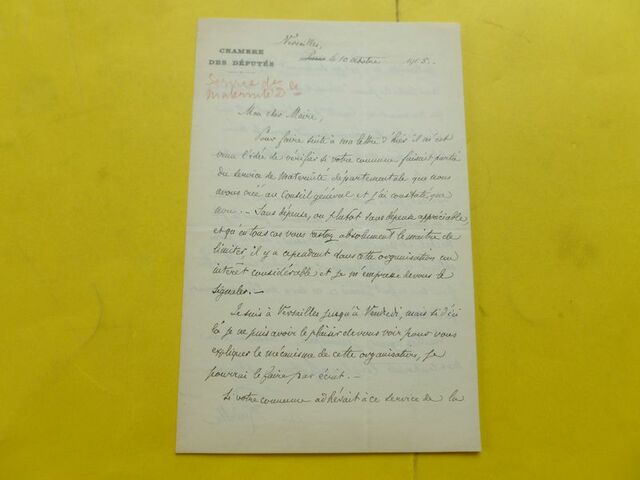 Versailles,
CHAMBRE
DES DÉPUTÉS
Paris le 10 octobre 1905.
Service de
maternité D le
Mon cher Maire,
Pour faire suite à ma lettre d'hier il m'est
venu l'idée de vérifier si votre commune faisait partie
du service de Maternité départementale que nous
avons créé au Conseil général et j'ai constaté que
non. – Sans dépense, ou plutot sans dépense appréciable,
et qu'en tous cas vous restez absolument le maître de
limiter, il y a cependant dans cette organisation un
intérêt considérable et je m'empresse de vous le
signaler. –
Je suis à Versailles jusqu'à Vendredi, mais si d'ici
là je ne puis avoir le plaisir de vous voir pour vous
expliquer le mécanisme de cette organisation, je
pourrai le faire par écrit. –
Si votre commune adhérait à ce service de la